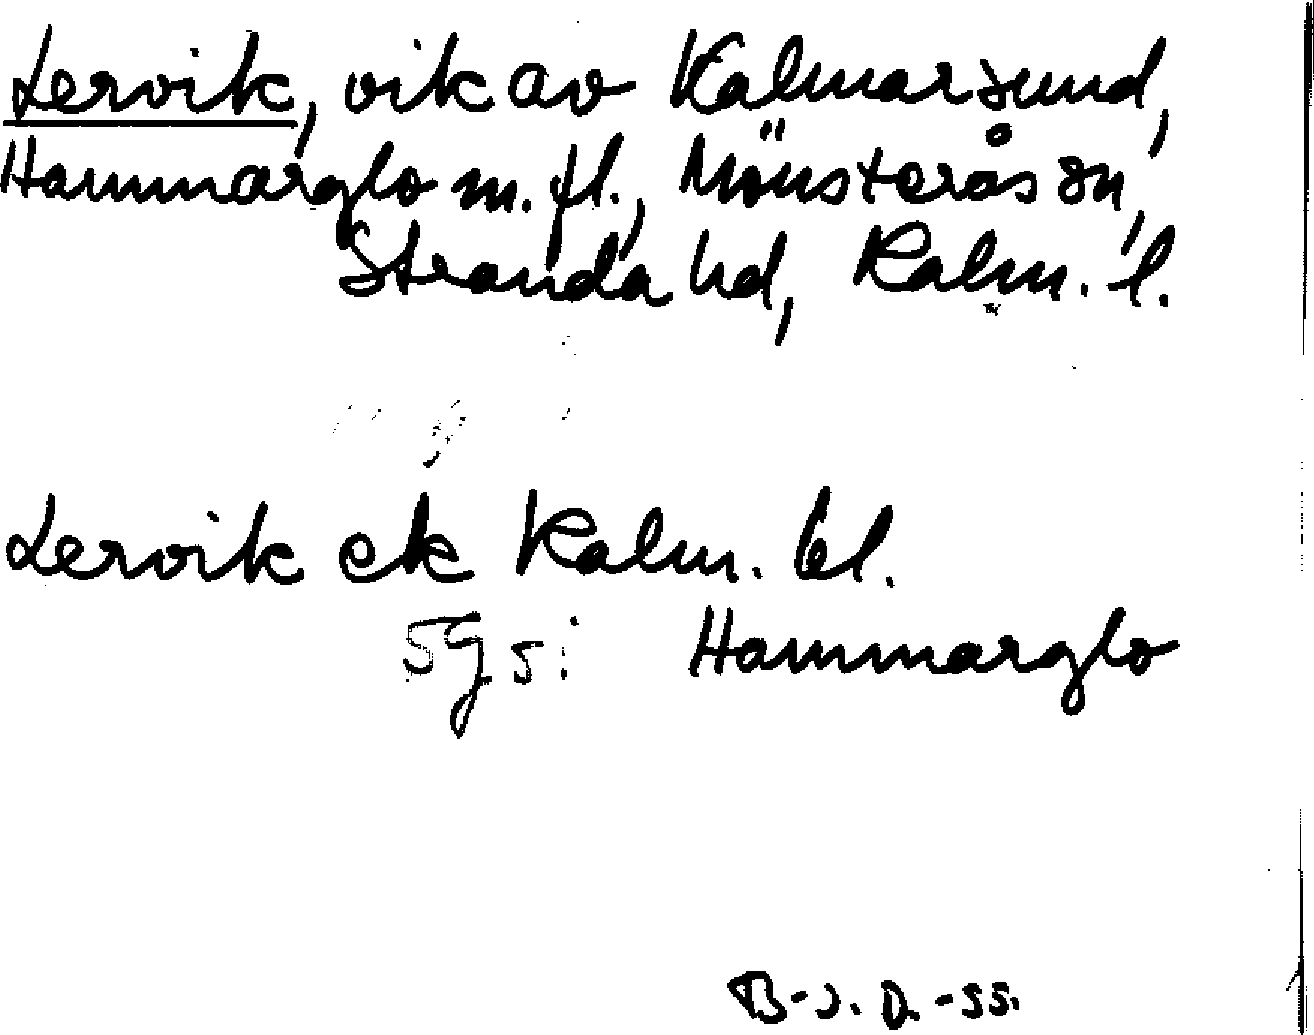 Lervik, vik av Kalmarsund,
Hammarglo m.fl., Mönsterås sn,
Stranda hd, Kalm. l.
Lervik ek Kalm. bl.
5g 5: Hammarglo
B-J.D.-55.